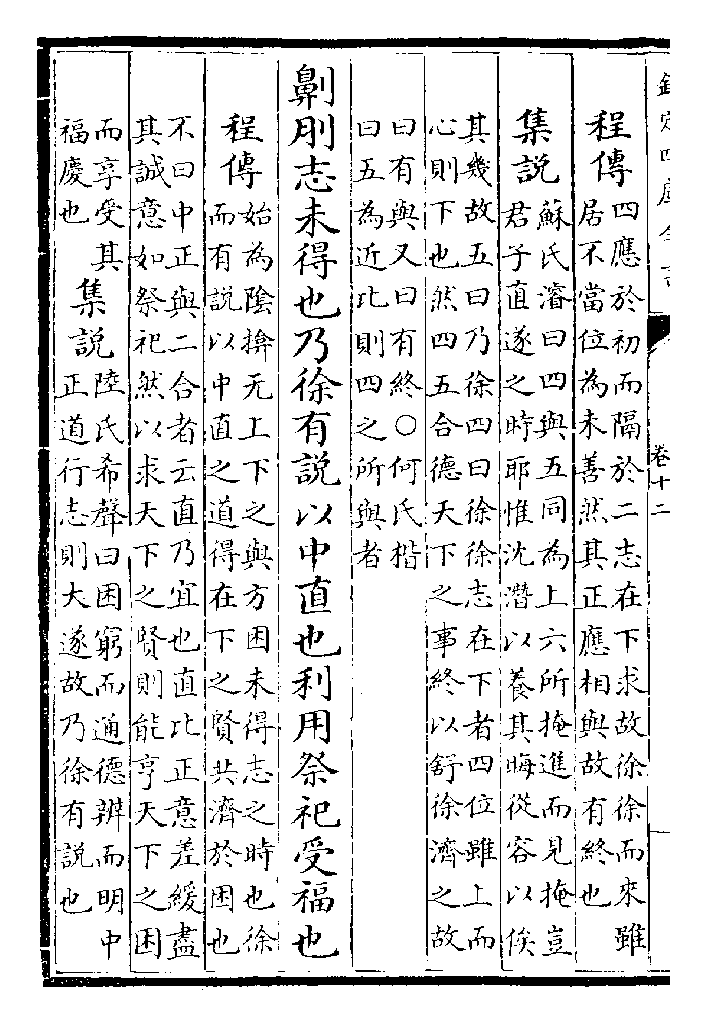 欽定四庫全書
卷十二
程傳四應於初而隔於二志在下求故徐徐而來雖
居不當位為未善然其正應相與故有終也
集說蘇氏濬曰四與五同為上六所掩進而見掩豈
君子直遂之時耶惟沈潛以養其晦從容以俟
其幾故五曰乃徐四曰徐徐志在下者四位雖上而
心則下也然四五合德天下之事終以舒徐濟之故
曰有與又曰有終○何氏楷
曰五為近比則四之所與者
劓刖志未得也乃徐有說以中直也利用祭祀受福也
程傳始為陰揜无上下之與方困未得志之時也徐
而有說以中直之道得在下之賢共濟於困也
不曰中正與二合者云直乃宜也直比正意差緩盡
其誠意如祭祀然以求天下之賢則能亨天下之困
而享受其
福慶也
集說陸氏希聲曰困窮而通德辨而明中
正道行志則大遂故乃徐有說也